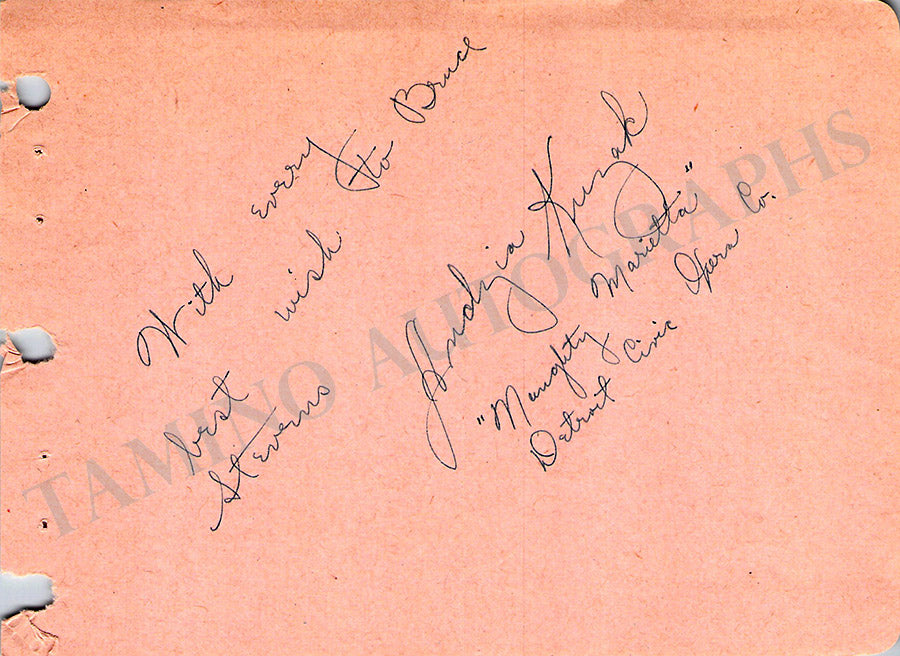 With every
best wish to Bruce
Stevens
Andzia Kuzak
"Naughty Marietta"
Detroit Civic Opera Co.
TAMINO AUTOGRAPHS